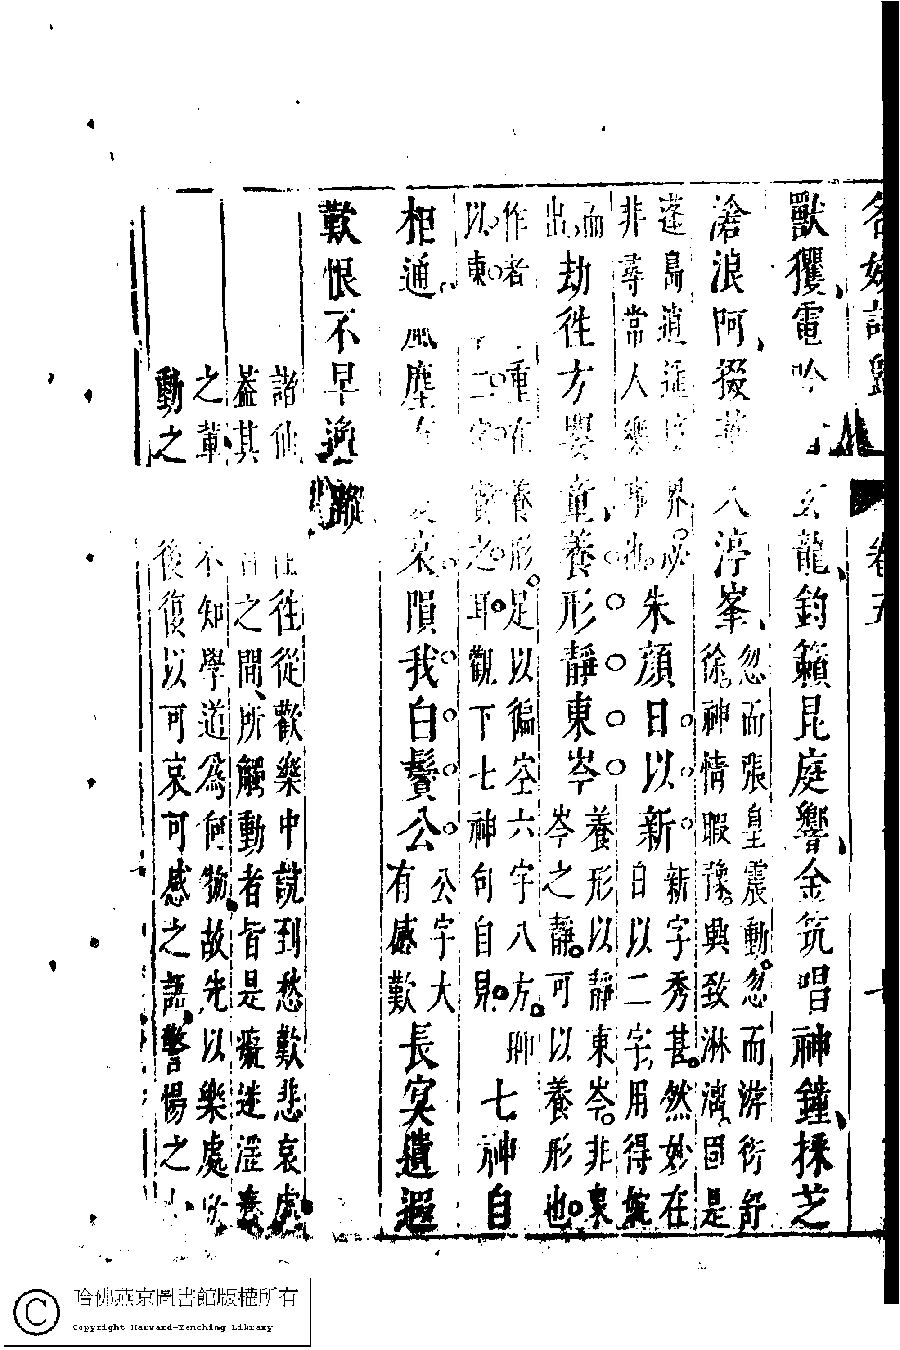 名媛詩歸 卷五 十
獸玃電吟 玄龍鈞籟昆庭響金筑唱神鐘採芝
滄浪阿掇華 八渟峯忽而張皇震動忽而游衍舒
徐神情暇豫興致淋漓固是
蓬島逍遥 界必
非尋常人樂事也朱顔日以新新字秀甚然妙在
日以二字用得
而
出劫徃方嬰童養形靜東岑養形以靜東岑非東
岑之靜可以養形也
作者 重在養形足以徧空六字八方聊七神自
以東 二字實之耳觀下七神句自見
柜通 風塵 哀隕我白鬢公公字大
有感歎長寞遺遐
歎恨不早逸蹤
諧仙 徃從歡樂中説到愁歎悲哀處
葢其 之間所觸動者皆是癡迷滛
之輩不知學道爲何物故先以樂處
動之後復以可哀可感之語警惕之
哈佛燕京圖書館版權所有
Copyright Harvard-Yenching Library